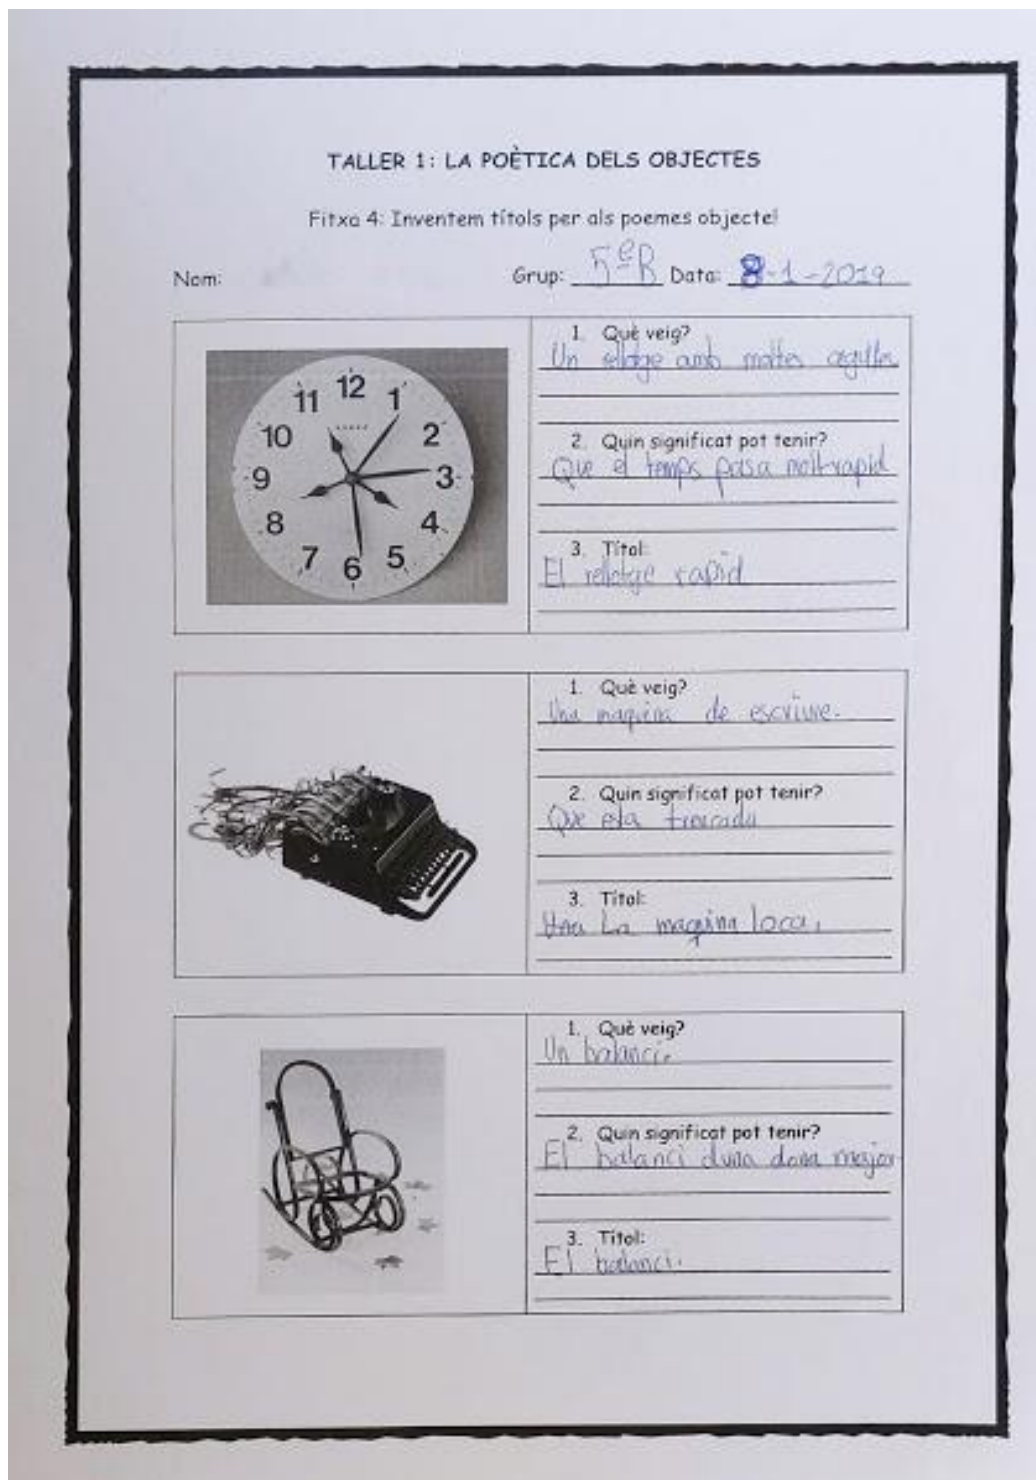 TALLER 1: LA POÈTICA DELS OBJECTES
Fitxa 4: Inventem títols per als poemes objecte!
Nom:
Grup: 5ºB Data: 8-1-2019
12
11
1
10
2
9
3
8
4
7
5
6
1. Què veig?
Un rellotge amb moltes agulles
2. Quin significat pot tenir?
Que el temps pasa molt rapid
3. Títol:
El rellotge rapid
1. Què veig?
Una maquina de escriure.
2. Quin significat pot tenir?
Que esta trencada
3. Títol:
Una La maquina loca.
1. Què veig?
Un balanci.
2. Quin significat pot tenir?
El balanci duna dona major
3. Títol:
El balanci.